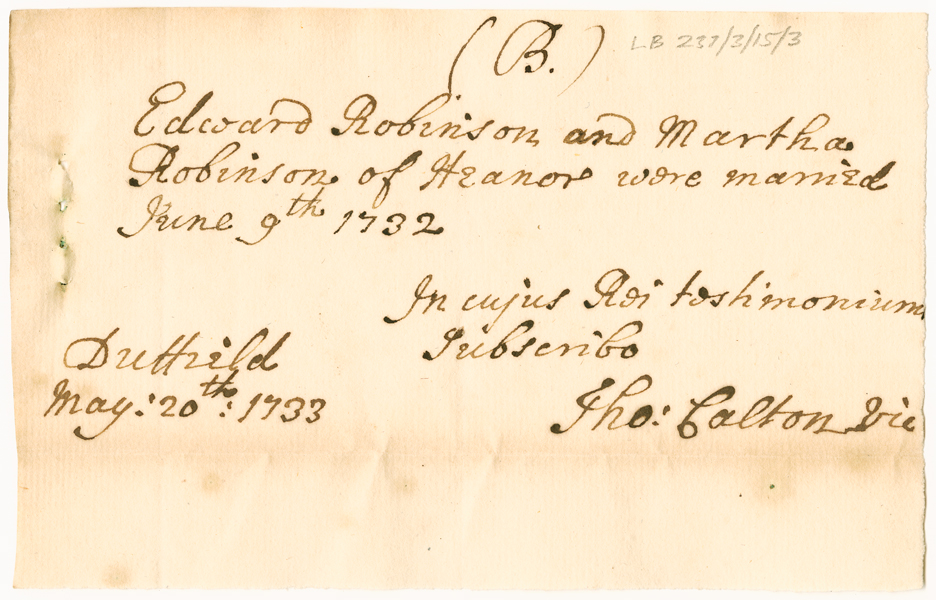 (B.) LB 237/3/15/3
Edward Robinson and Martha
Robinson of Heanor were married
June 9th 1732
In cujus Rei testimonium
Subscribo
Duffield
May: 20th: 1733
Tho: Calton Vic